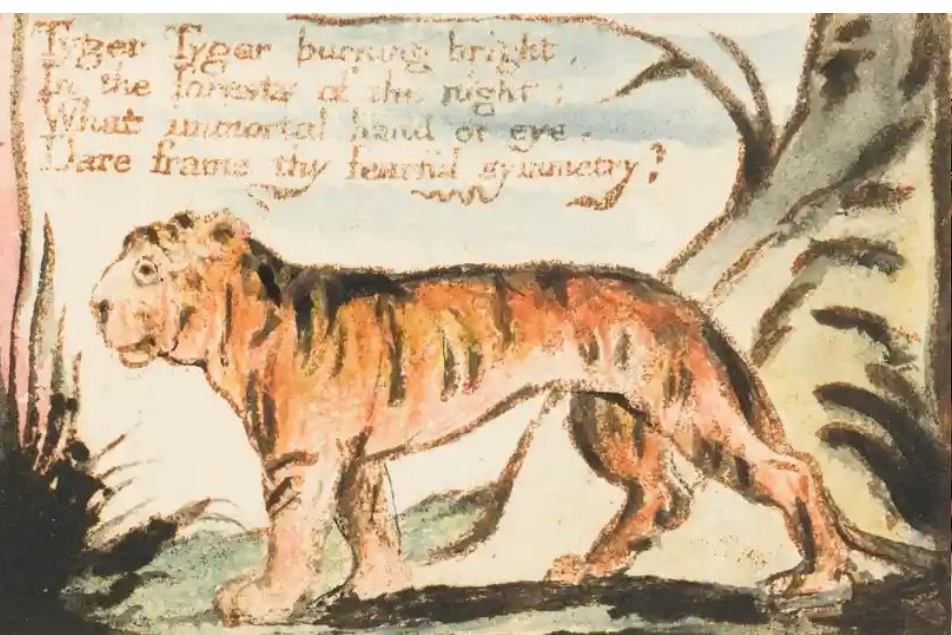 Tyger Tyger burning bright,
In the forests of the night;
What immortal hand or eye.
Dare frame thy fearful symmetry?